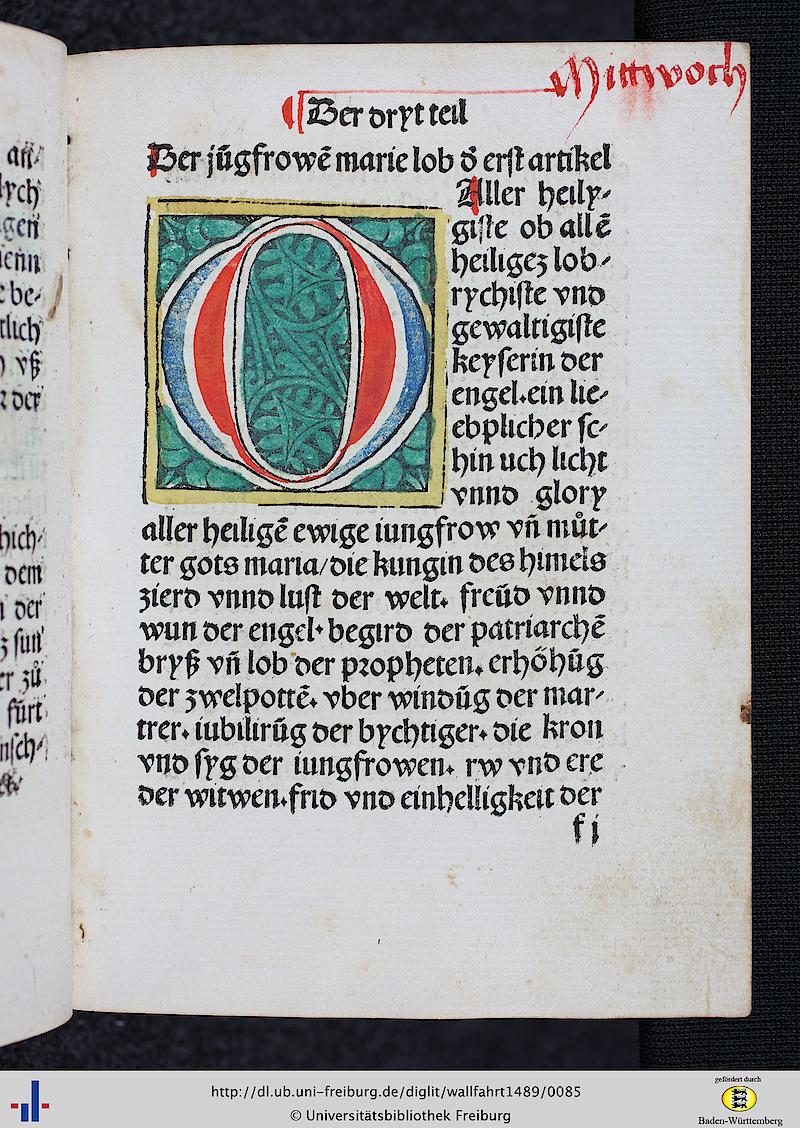 an⸗
lych
gen
be⸗
tlich
vß
der
hich⸗
dem
der
sun
zů
fürt
nsch⸗
Mittwoch
Der dryt teil
Der jūgfrowē marie lob d̄ erst artikel
O
Aller heily⸗
giste ob allē
heiligeʒ lob⸗
rychiste vnd
gewaltigiste
keyserin der
engel.ein lie⸗
ebplicher sc⸗
hin uch licht
vnnd glory
aller heiligē ewige iungfrow vn̄ můt⸗
ter gots maria/die kungin des himels
zierd vnnd lust der welt. freüd vnnd
wun der engel. begird der patriarchē
bryß vn̄ lob der propheten. erhöhūg
der zwelpottē. vber windūg der mar⸗
trer. iubilirūg der bychtiger. die kron
vnd syg der iungfrowen. rw vnd ere
der witwen.frid vnd einhelligkeit der
f i
http://dl.ub.uni-freiburg.de/diglit/wallfahrt1489/0085
© Universitätsbibliothek Freiburg
gefördert durch
Baden-Württemberg